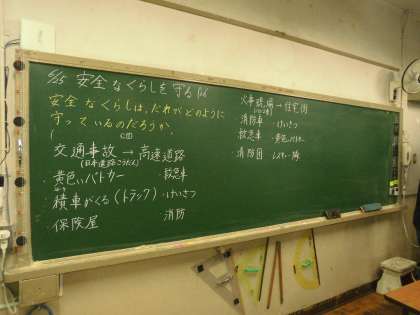 5/15 安全なくらしを守る P.6
安全なくらしは、だれがどのように
守っているのだろうか。
交通事故 → 高速道路
(日本道路こうだん)
・黄色いパトカー ・救急車
・積車がくる(トラック) ・けいさつ
・保険屋 ・消防
火事現場 → 住宅街
・消防車 ・けいさつ
・救急車 ・黄色パトカー
・消防団 レスキュー隊